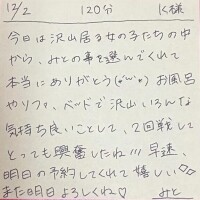 12/2 120分 K様
今日は沢山居る女の子たちの中
から、みとの事を選んでくれて
本当にありがとう(*˘︶˘*) お風呂
やソファ、ベッドで沢山いろんな
気持ち良いことして、2回戦して
とっても興奮したね!!! 早速、
明日の予約してくれて嬉しい♡♡
また明日よろしくね♡ みと